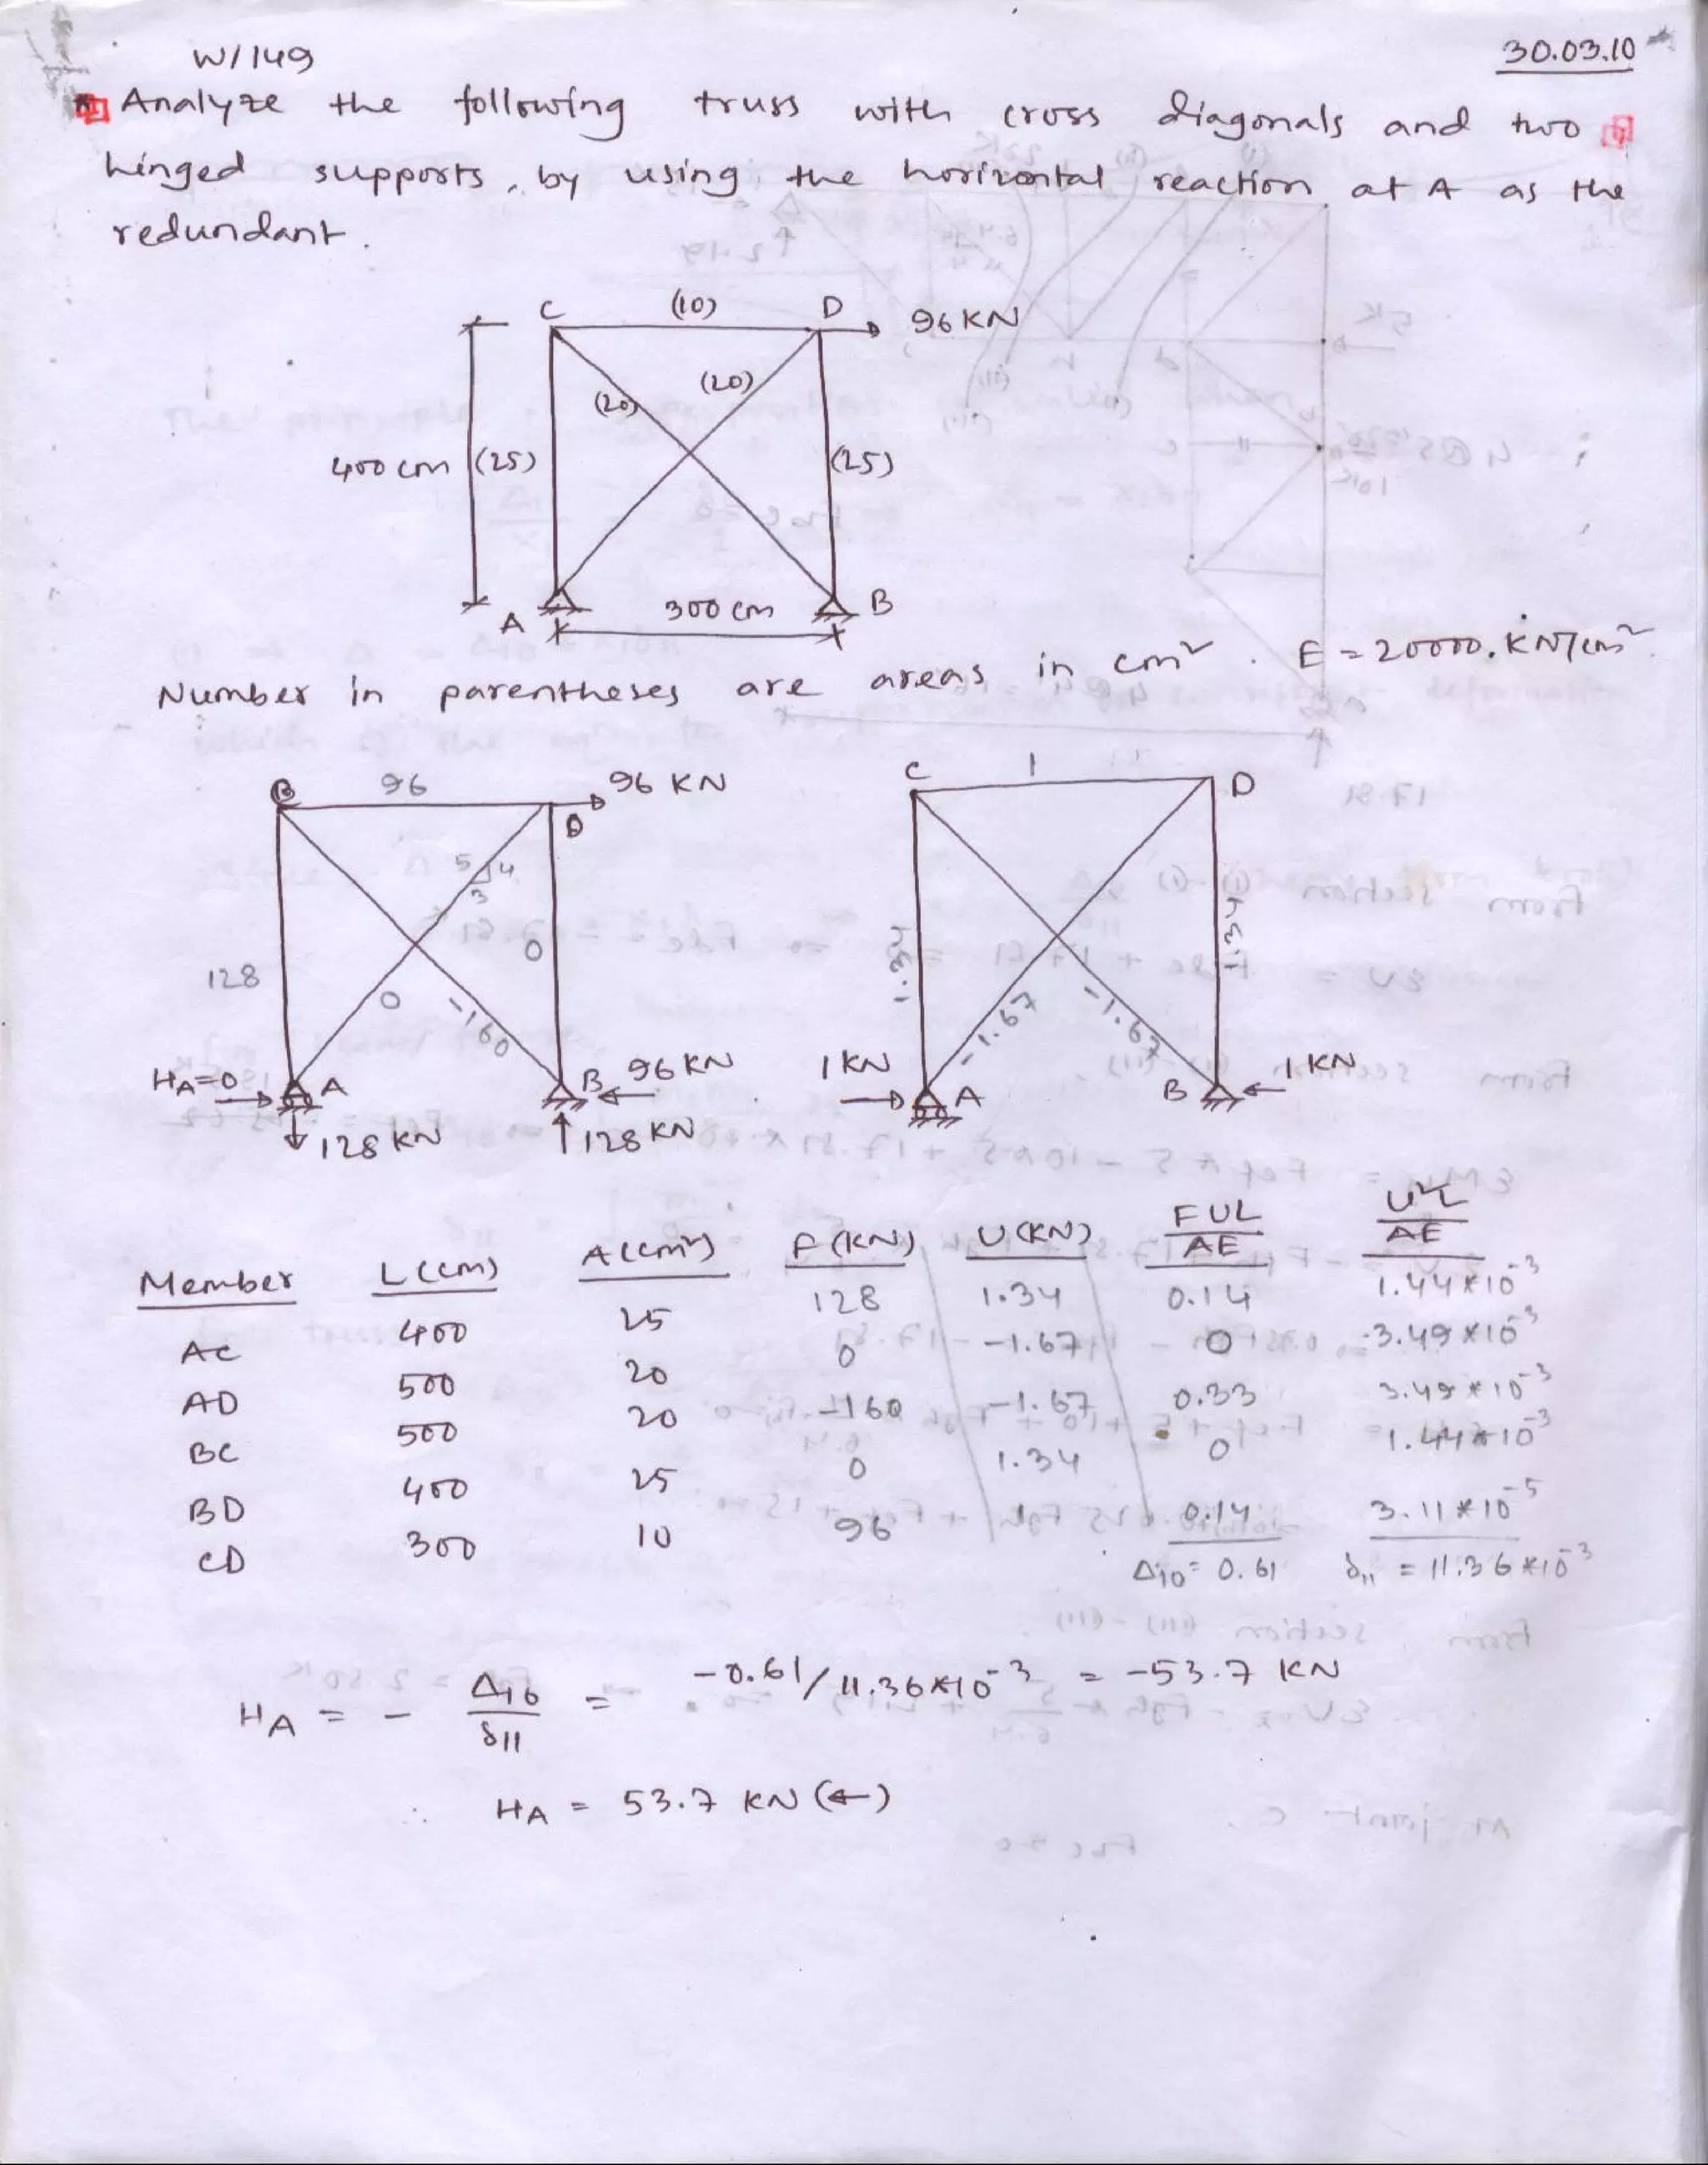 W/149
30.03.10
Analyze the following truss with cross diagonals and two
hinged supports, by using the horizontal reaction at A as the
redundant.
C (10) D 96 KN
(20) (20)
400 cm (25) (25)
A 300 cm B
Number in parentheses are areas in cm². E = 20000. KN/cm²
96 96 KN
D
5 4
3
128 0
0 -160
HA=0 A B 96 KN
128 KN 128 KN
C 1 D
1.34 1.34
-1.67 -1.67
1 KN A B 1 KN
Member L (cm) A (cm²) F (KN) U (KN) FUL/AE U²L/AE
AC 400 25 128 1.34 0.14 1.44*10⁻³
AD 500 20 0 -1.67 0 3.49*10⁻³
BC 500 20 -160 -1.67 0.33 3.49*10⁻³
BD 400 25 0 1.34 0 1.44*10⁻³
CD 300 10 96 1 0.14 3.11*10⁻⁵
Δ10 = 0.61 δ11 = 11.36*10⁻³
HA = - Δ10/δ11 = -0.61/11.36*10⁻³ = -53.7 KN
∴ HA = 53.7 KN (←)